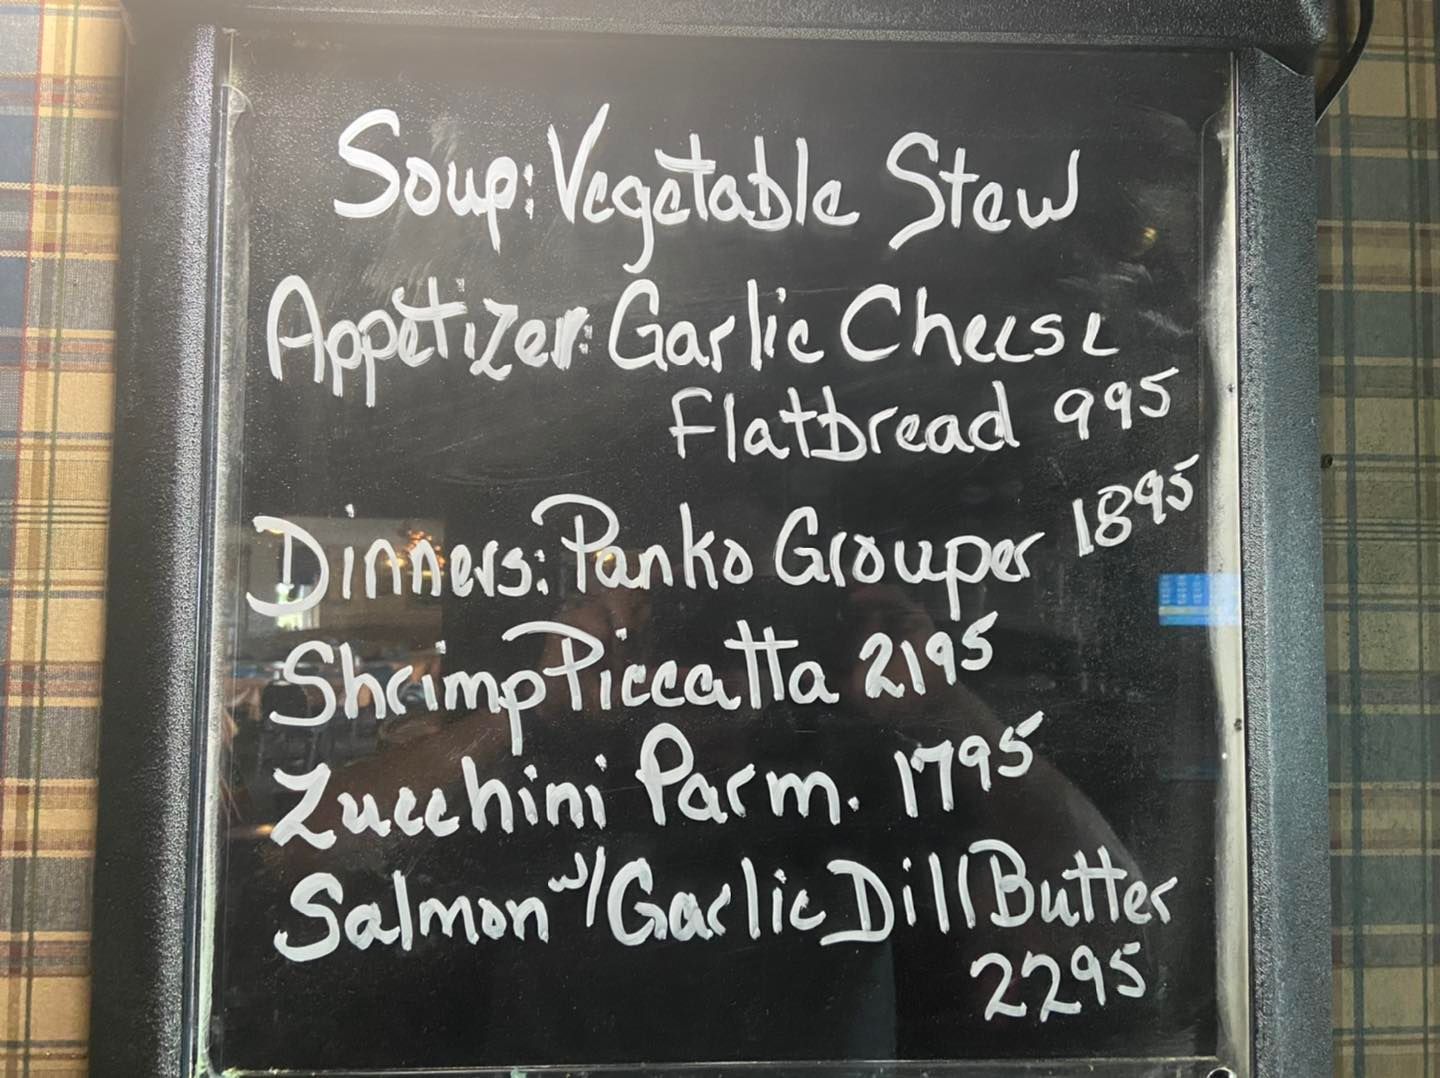 Soup: Vegetable Stew
Appetizer: Garlic Cheese
Flatbread 995
Dinners: Panko Grouper 1895
Shrimp Piccatta 2195
Zucchini Parm. 1795
Salmon w/ Garlic Dill Butter
2295